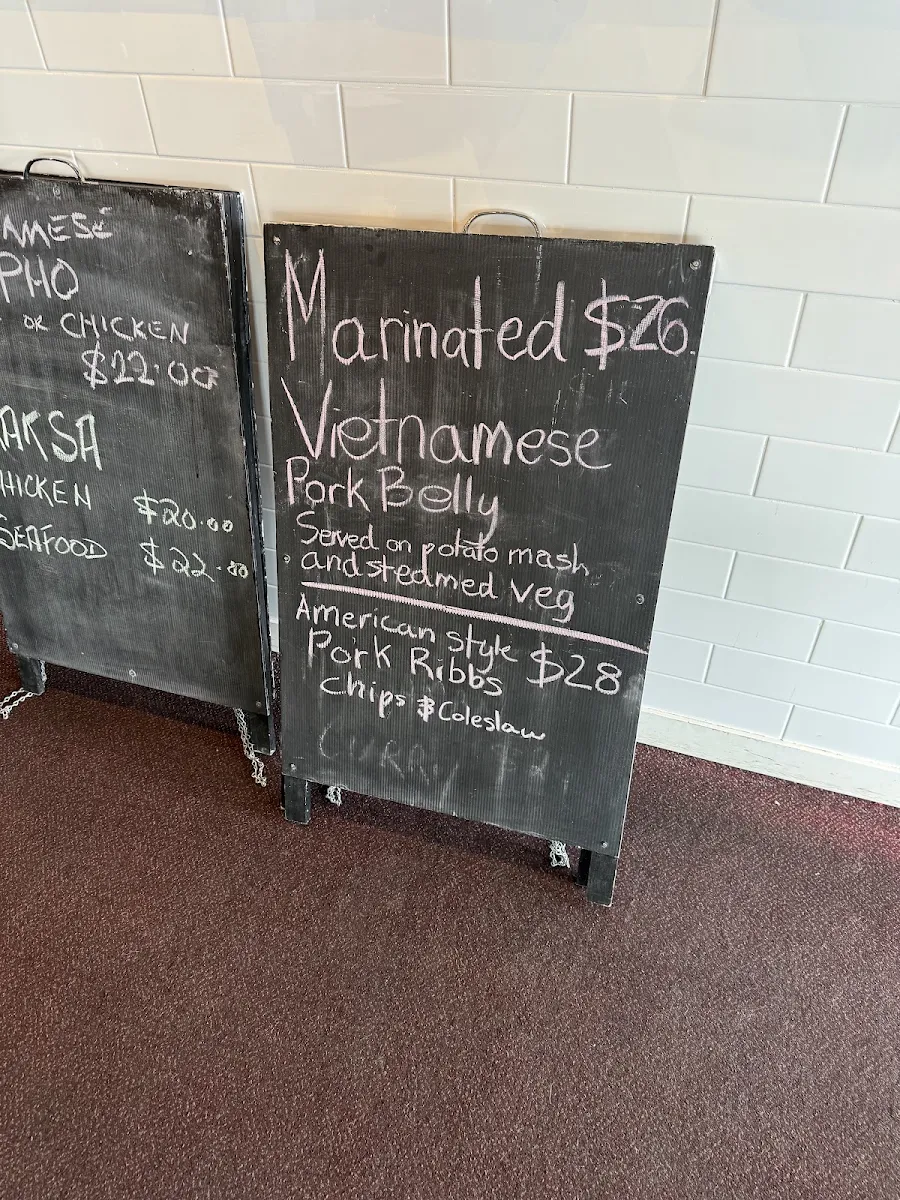 AMESE
PHO
OR CHICKEN
$22.00
AKSA
HICKEN $20.00
SEAFOOD $22.00
Marinated $26.
Vietnamese
Pork Belly
Served on potato mash
and steamed veg
American style
Pork Ribbs $28
Chips & Coleslaw